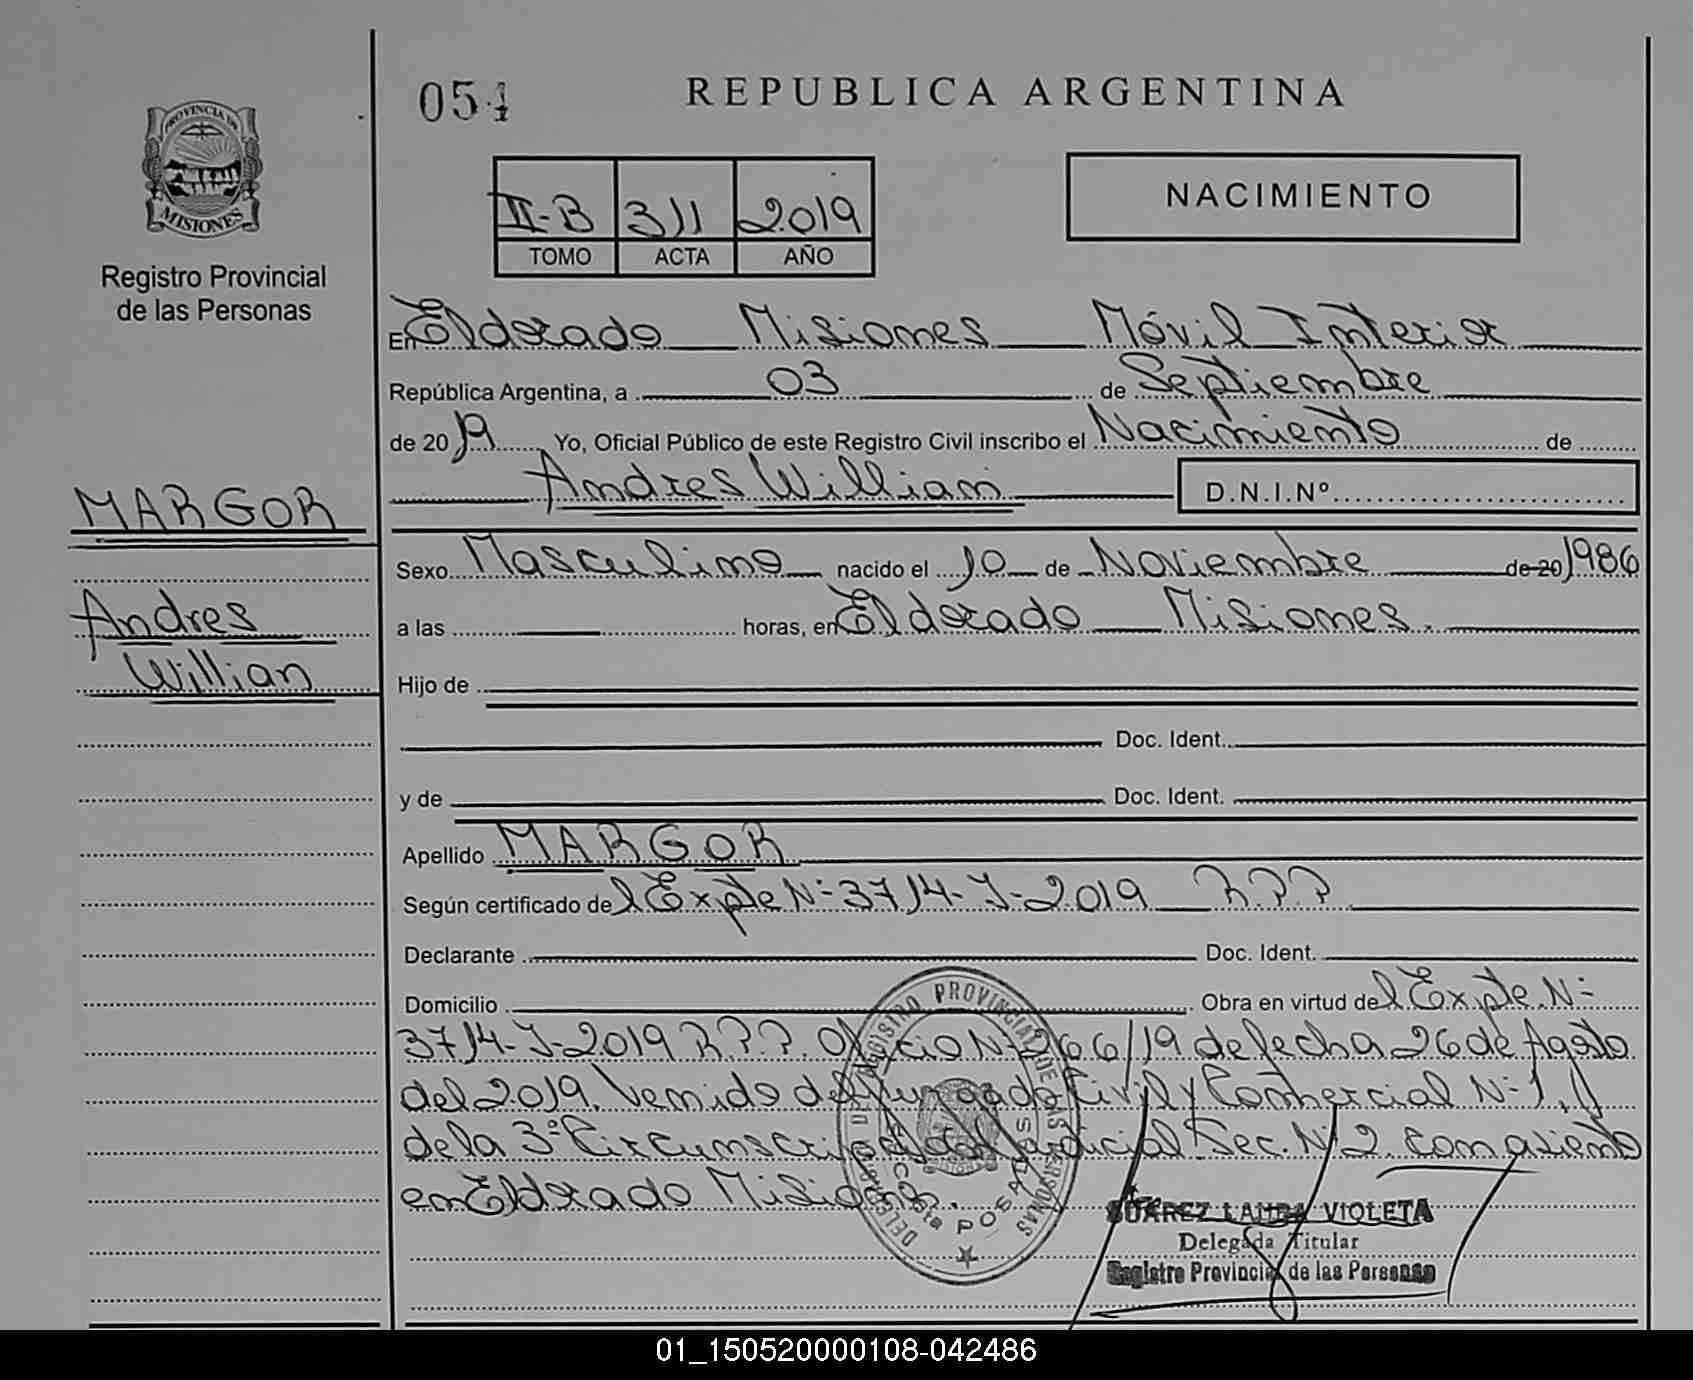 054
REPUBLICA ARGENTINA
PROVINCIA DE
MISIONES
Registro Provincial
de las Personas
II-B 311 2019
TOMO ACTA AÑO
NACIMIENTO
En Eldorado Misiones Móvil Interior
República Argentina, a 03 de Septiembre
de 2019 Yo, Oficial Público de este Registro Civil inscribo el Nacimiento de
Andres Willian D.N.I.Nº
MARGOR
Andres
Willian
Sexo Masculino nacido el 10 de Noviembre de 20 1986
a las horas, en Eldorado Misiones.
Hijo de
Doc. Ident.
y de Doc. Ident.
Apellido MARGOR
Según certificado del Expte Nº 3714-J-2019 R.P.P.
Declarante Doc. Ident.
Domicilio Obra en virtud del Expte. Nº
3714-J-2019 R.P.P. Oficio Nº 266/19 de fecha 26 de Agosto
del 2019. Venido del Juzgado Civil y Comercial Nº 1,
de la 3º Circunscripción Judicial Sec. Nº 2 con asiento
en Eldorado Misiones.
REGISTRO PROVINCIAL DE LAS PERSONAS
POSADAS
SUAREZ LAURA VIOLETA
Delegada Titular
Registro Provincial de las Personas
01_150520000108-042486